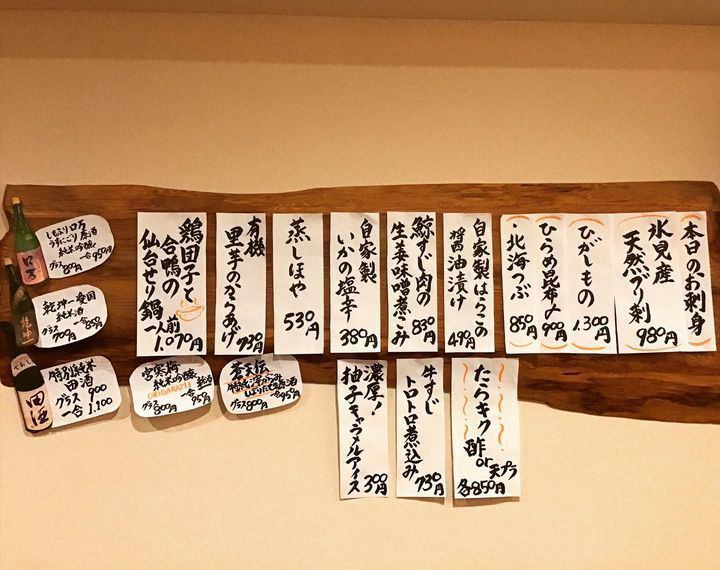 本日のお刺身
氷見産
天然ブリ刺
980円
ひがしもの
1,300円
ひらめ昆布〆
900円
北海つぶ
850円
自家製はらこの
醤油漬け
490円
鯨すじ肉の
生姜味噌煮こみ
830円
自家製
いかの塩辛
380円
蒸しほや
530円
有機
里芋のからあげ
730円
鶏団子と
合鴨の
仙台せり鍋
一人前
1,070円
たらキク
酢or天プラ
各850円
牛すじ
トロトロ煮込み
730円
濃厚!
柚子キャラメルアイス
300円
しもふりロ万
うすにごり原酒
純米吟醸
一合950円
グラス800円
乾坤一愛国
純米酒
一合850円
グラス700円
特別純米
田酒
グラス900
一合1,100
宮寒梅
純米吟醸
ORIGARAMI
一合950円
グラス800円
蒼天伝
しぼりたて
グラス800円
一合950円
田酒